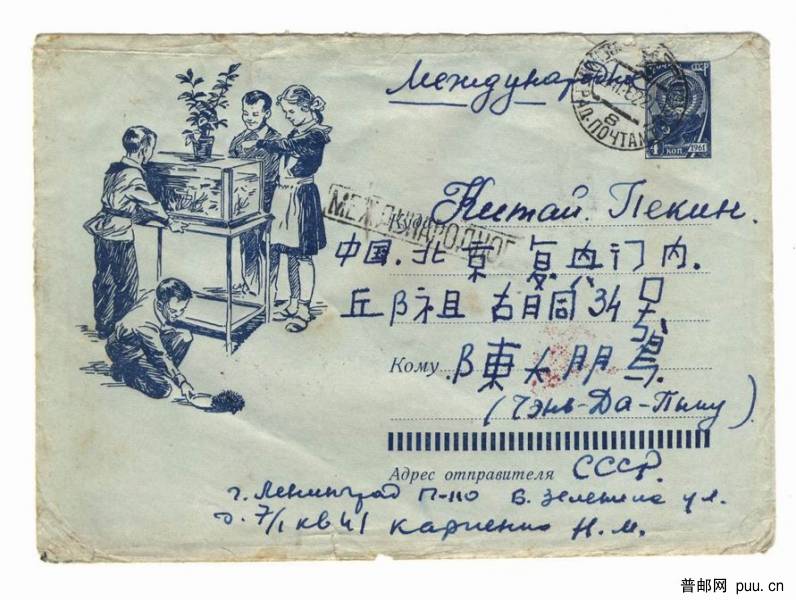 Международное
4 КОП 1961
МЕЖДУНАРОДНОЕ
Куда Китай. Пекин.
中国.北京 复兴门内.
丘阝祖 胡同34号
Кому 陳大朋鸟
(Чэнь-Да-Пыну)
Адрес отправителя СССР.
г. Ленинград П-110 Б. Зеленина ул.
д. 7/1 кв 41 Карпенко Н.М.
普邮网 puu.cn